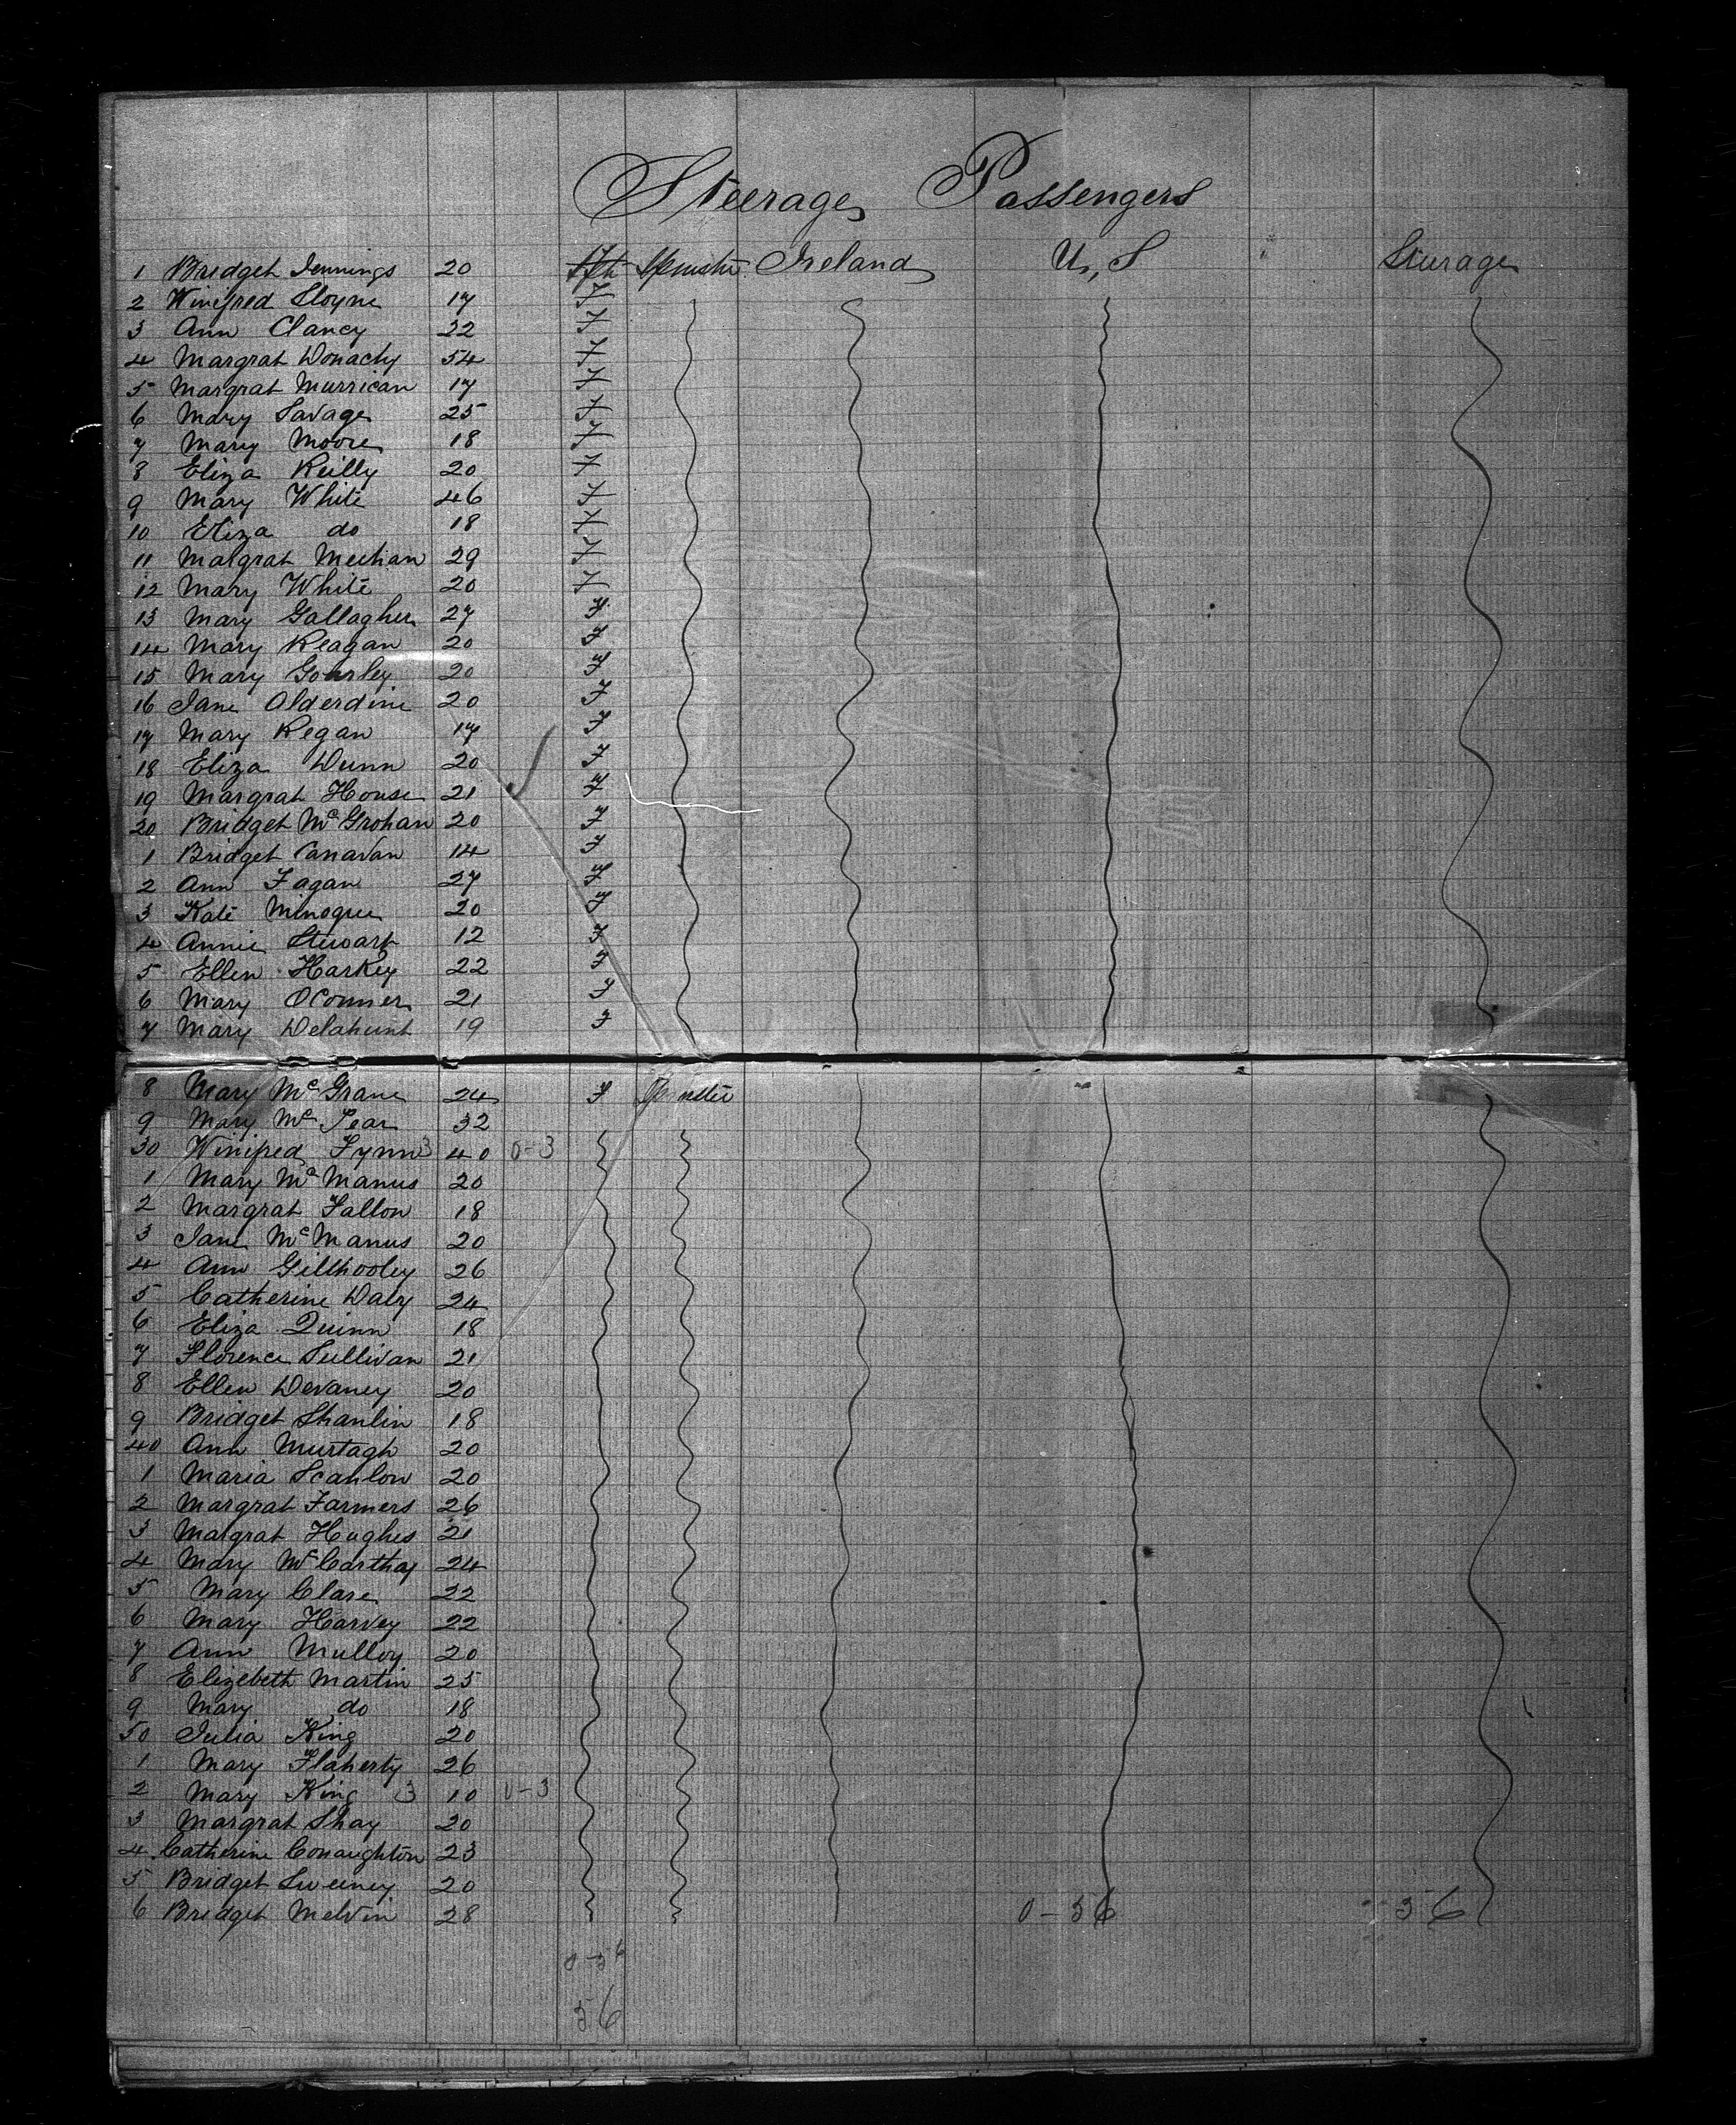 Steerage Passengers
1 Bridget Jennings 20 Spinster Ireland U,S Steerage
2 Winefred Sloyne 17 F
3 Ann Clancy 22 F
4 Margrat Donachy 54 F
5 Margrat Murrican 17 F
6 Mary Savage 25 F
7 Mary Moore 18 F
8 Eliza Reilly 20 F
9 Mary White 46 F
10 Eliza do 18 F
11 Margrat Meehan 29 F
12 Mary White 20 F
13 Mary Gallagher 27 F
14 Mary Reagan 20 F
15 Mary Gourley 20 F
16 Jane Alderdine 20 F
17 Mary Regan 17 F
18 Eliza Dunn 20 F
19 Margrat House 21 F
20 Bridget McGrohan 20 F
1 Bridget Canavan 14 F
2 Ann Fagan 27 F
3 Kate Minogue 20 F
4 Annie Stewart 12 F
5 Ellen Harkey 22 F
6 Mary OConner 21 F
7 Mary Delahunt 19 F
8 Mary McGrane 24 F Spinster
9 Mary Mc 32
30 Winifred Fynn 3 40 0-3
1 Mary McManus 20
2 Margrat Fallon 18
3 Jane McManus 20
4 Ann Gillhooley 26
5 Catherine Daly 24
6 Eliza Quinn 18
7 Florence Sullivan 21
8 Ellen Devaney 20
9 Bridget Shanlin 18
40 Ann Murtagh 20
1 Maria Scanlon 20
2 Margrat Farmers 26
3 Margrat Hughes 21
4 Mary McCarthy 24
5 Mary Clare 22
6 Mary Harvey 22
7 Ann Mulloy 20
8 Elizebeth Martin 25
9 Mary do 18
50 Julia King 20
1 Mary Flaherty 26
2 Mary King 3 10 0-3
3 Margrat Shay 20
4 Catherine Conaughton 23
5 Bridget Sweeney 20
6 Bridget Melvin 28 0-56 56
0-56
56